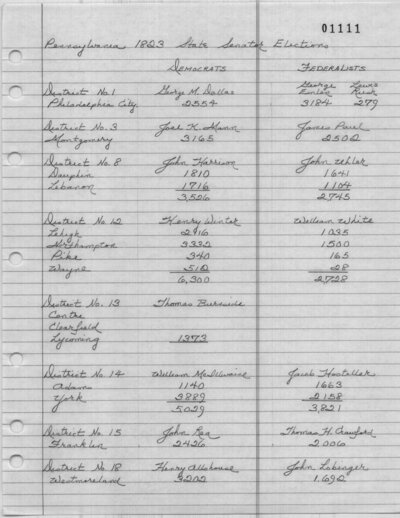 01111
Pennsylvania 1823 State Senator Elections
DEMOCRATS FEDERALISTS
District No. 1 George M. Dallas George Emlen Lewis Rush
Philadelphia City 2554 3184 279
District No. 3 Joel K. Mann James Paul
Montgomery 3165 2502
District No. 8 John Harrison John Zehler
Dauphin 1810 1641
Lebanon 1716 1104
3,526 2,745
District No. 12 Henry Winter William White
Lehigh 2916 1035
Northampton 3332 1500
Pike 340 165
Wayne 512 28
6,300 2,728
District No. 13 Thomas Burnside
Centre
Clearfield
Lycoming 1373
District No. 14 William McIlvaine Jacob Hostetter
Adams 1140 1663
York 3889 2158
5,029 3,821
District No. 15 John Rea Thomas H. Crawford
Franklin 2426 2006
District No. 18 Henry Allshouse John Lobinger
Westmoreland 3202 1,692